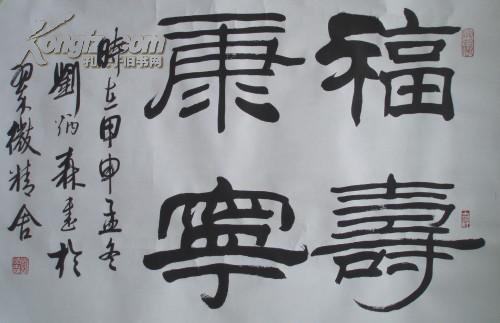 福壽
康寧
時在甲申孟冬
劉炳森書於
翠微精舍
Kongfz.com
孔夫子旧书网